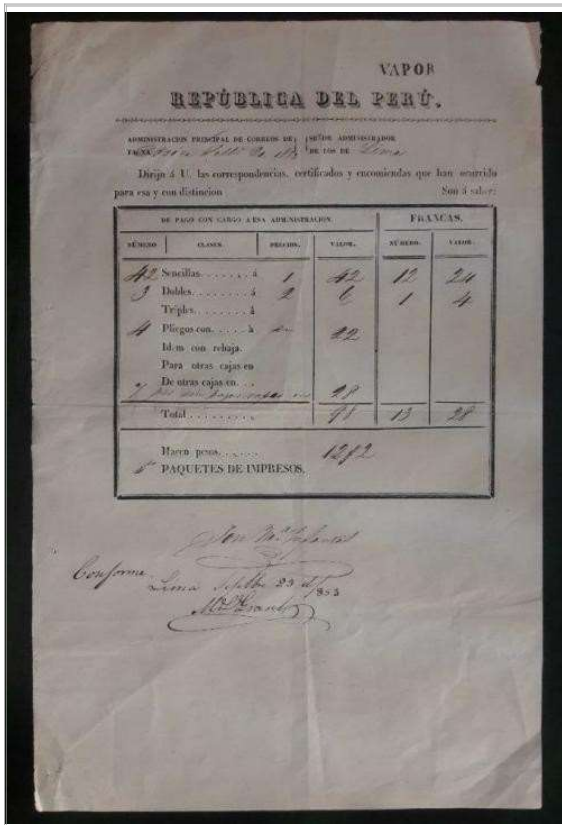 VAPOR
REPÚBLICA DEL PERÚ.
ADMINISTRACION PRINCIPAL DE CORREOS DE SEÑOR ADMINISTRADOR
TACNA DE LOS DE Lima
Dirijo á U. las correspondencias, certificados y encomiendas que han ocurrido
para esa y con distincion Son á saber:
DE PAGO CON CARGO A ESA ADMINISTRACION. FRANCAS.
NÚMERO CLASES. PRECIOS. VALOR. NÚMERO. VALOR.
42 Sencillas........á 1 42 12 24
3 Dobles.........á 2 6 1 4
Triples........á
4 Pliegos con.....à 22
Idem con rebaja.
Para otras cajas en
De otras cajas en...
7 28
Total......... 98 13 28
Hacen pesos......
PAQUETES DE IMPRESOS.
Conforme
Lima 23